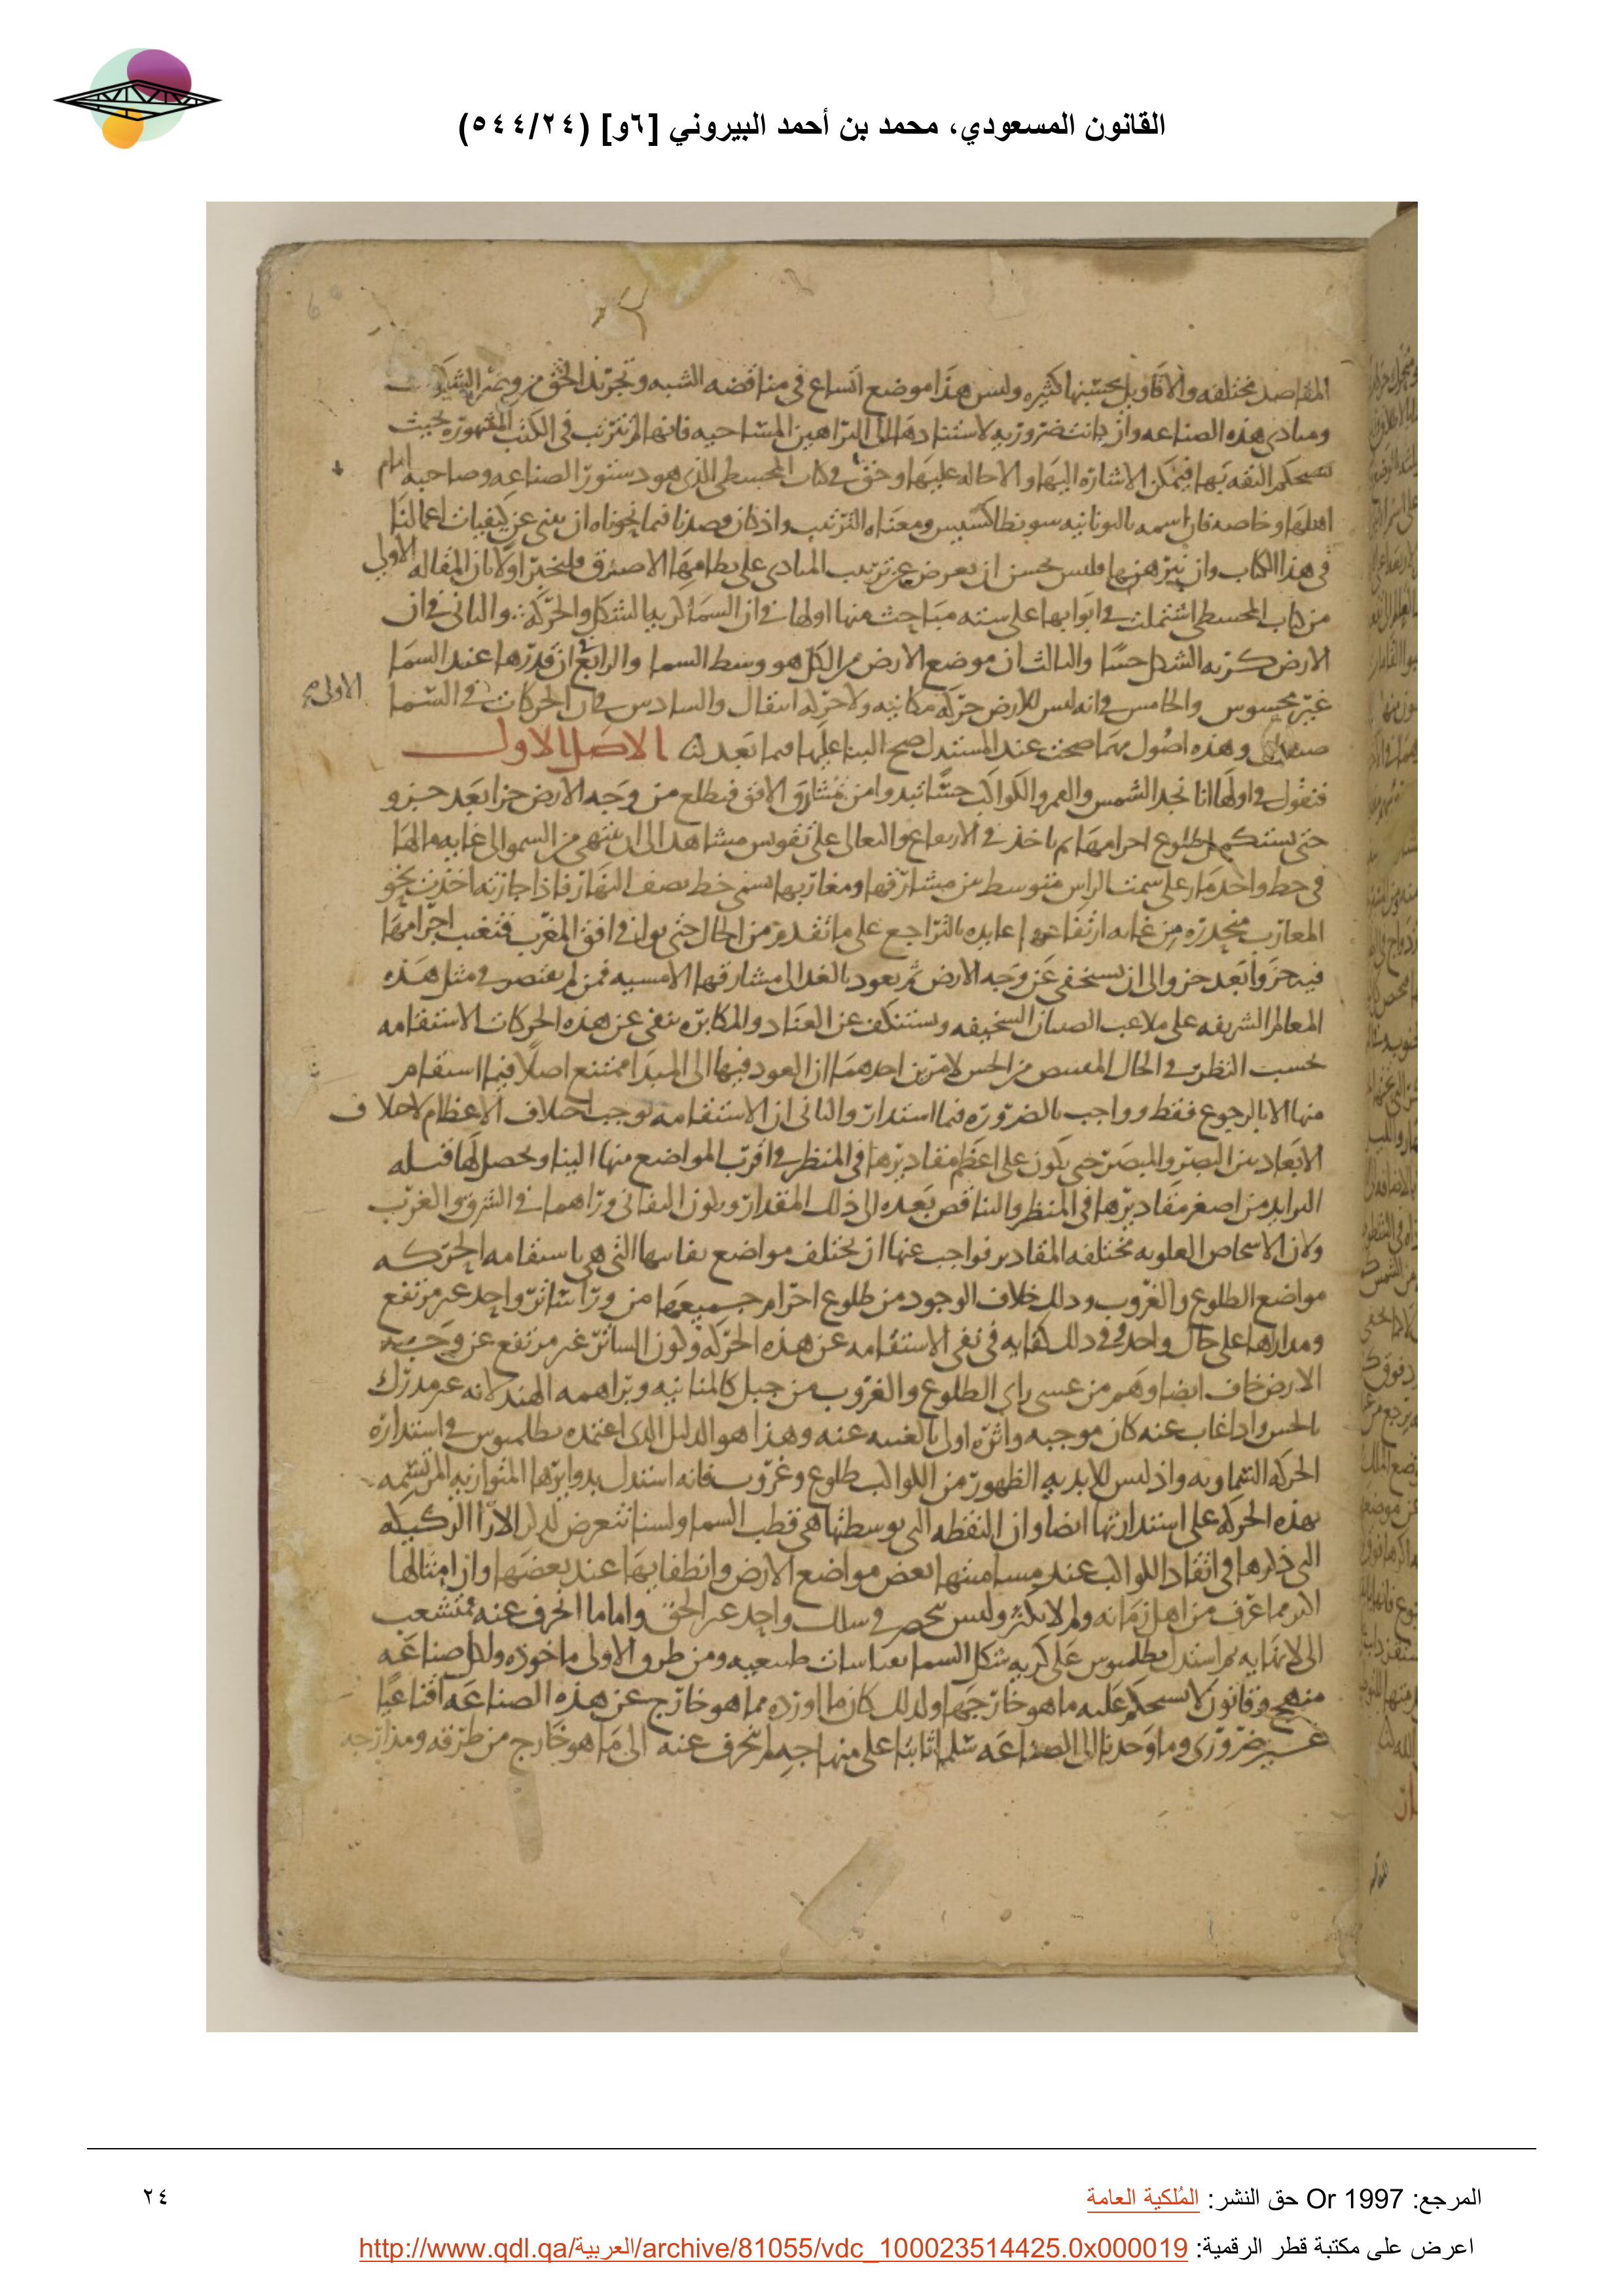 القانون المسعودي، محمد بن أحمد البيروني [٦و] (٥٤٤/٢٤)
6
المقاصد مختلفه والاقاويل بحسبها كثيره وليس هذا موضع اتساع في مناقضه الشبه وتجريد الحق من
ومبادى هذه الصناعه وان كانت ضروريه لاستنادها الى البراهين المساحيه فانها لم تترتب في الكتب المشهوره بحيث
تستحكم الثقه بها فيمكن الاشاره اليها والاحاله عليها وحق في كتاب المجسطى الذى هو دستور الصناعه وصاحبه امام
اهلها وخاصه فان اسمه باليونانيه سونطاكسيس ومعناه الترتيب واذ كان قصدنا فيما نحوناه ان نبنى عن كيفيات اعمالنا
فى هذا الكتاب وان نبرهنها فليس يحسن ان نعرض عن ترتيب المبادى على نظامها الاصدق فلنخبر اولا بان المقاله الاولى
من كتاب المجسطى اشتملت في ابوابها على سته مباحث منها اولها في ان السما كريه الشكل والحركه والثانى في ان
الارض كريه الشكل حسا والثالث ان موضع الارض من الكل هو وسط السما والرابع في ان قدرها عند السما
غير محسوس والخامس في انه ليس للارض حركه مكانيه ولا حركه انتقال والسادس في ان الحركات الاولى في السما
صنفان وهذه اصول مهما صحت عند المستدل صح البنا عليها فيما بعد الاصل الاول
فنقول في اولها انا نجد الشمس والقمر والكواكب حسا تبدوا من مشارق الافق فتطلع من وجه الارض جزا بعد جزو
حتى يستكمل طلوع اجرامها ثم ياخذ في الارتفاع والتعالى على تقويس مشاهد الى ان ينتهى من السمو الى غايه مالها
في خط واحد مار على سمت الراس متوسط بين مشارقها ومغاربها يسمى خط نصف النهار فاذا جازته اخذت نحو
المغارب منحدره من غايه ارتفاعها عايده بالتراجع على ما تقدم من الحال حتى توافى افق المغرب فتغيب اجرامها
فيه جزوا بعد جزو الى ان تستخفى عن وجه الارض ثم يعود بالغد الى مشارقها الامسيه فمن لم يقتصر في مثل هذه
المعالم الشريفه على ملاعب الصبيان السخيفه ويستنكف عن العناد والمكابره ينفى عن هذه الحركات الاستقامه
بحسب النظر في الحال المقتبس من الحس لامرين احدهما ان العود فيها الى المبدا ممتنع اصلا فيما استقام
منها الا بالرجوع فقط وواجب بالضروره فيما استدار والثانى ان الاستقامه توجب اختلاف الاعظام لاختلاف
الابعاد بين البصر والمبصر حتى يكون على اعظم مقاديرها في المنظر في اقرب المواضع منها الينا ويحصل لها قبله
التزايد من اصغر مقاديرها في المنظر والتناقص بعده الى ذلك المقدار ويكون التفانى وراهما في الشرق والغرب
ولان الاشخاص العلويه مختلفه المقادير فواجب عنها ان يختلف مواضع تفانيها التى هى باستقامه الحركه
مواضع الطلوع والغروب وذلك خلاف الوجود من طلوع اجرام جميعها من ورا ساتر واحد غير مرتفع
ومدارها على حال واحد وفي ذلك كفايه في نفى الاستقامه عن هذه الحركه وكون الساتر غير مرتفع عن وجه
الارض خاف ايضا وهم من عسى راى الطلوع والغروب من جبل كالمنانيه وبراهمه الهند لانه غير مدرك
بالحس واذا غاب عنه كان موجبه واثره اولى بالغيبه عنه وهذا هو الدليل الذى اعتمده بطلميوس في استداره
الحركه السماويه واذ ليس للابديه الظهور من الكواكب طلوع وغروب فانه استدل بدوايرها المتوازيه المرتسمه
بهذه الحركه على استدارتها ايضا وان النقطه التى توسطتها هى قطب السما ولسنا نتعرض لذكر الارا الركيكه
التى ذكرها في اتقاد الكواكب عند مسامتتها بعض مواضع الارض وانطفايها عند بعضها وان امثالها
اكثر مما عرف من اهل زمانه ولم لا يكثر وليس ينحصر في سلك واحد غير الحق واما ما انحرف عنه فمتشعب
الى لا نهايه ثم استدل بطلميوس على كريه شكل السما بقياسات طبيعيه ومن طرق الاولى ماخوذه ولكل صناعه
منهج وقانون لا يستحكم عليه ما هو خارجها ولذلك كان ما اورده مما هو خارج عن هذه الصناعه اقناعيا
غير ضرورى وما وجدنا الى الصناعه سلما ثابتا على منهاجه لم ننحرف عنه الى ما هو خارج من طرقه ومدارجه
المرجع: Or 1997 حق النشر: المُلكية العامة
٢٤
اعرض على مكتبة قطر الرقمية: http://www.qdl.qa/العربية/archive/81055/vdc_100023514425.0x000019